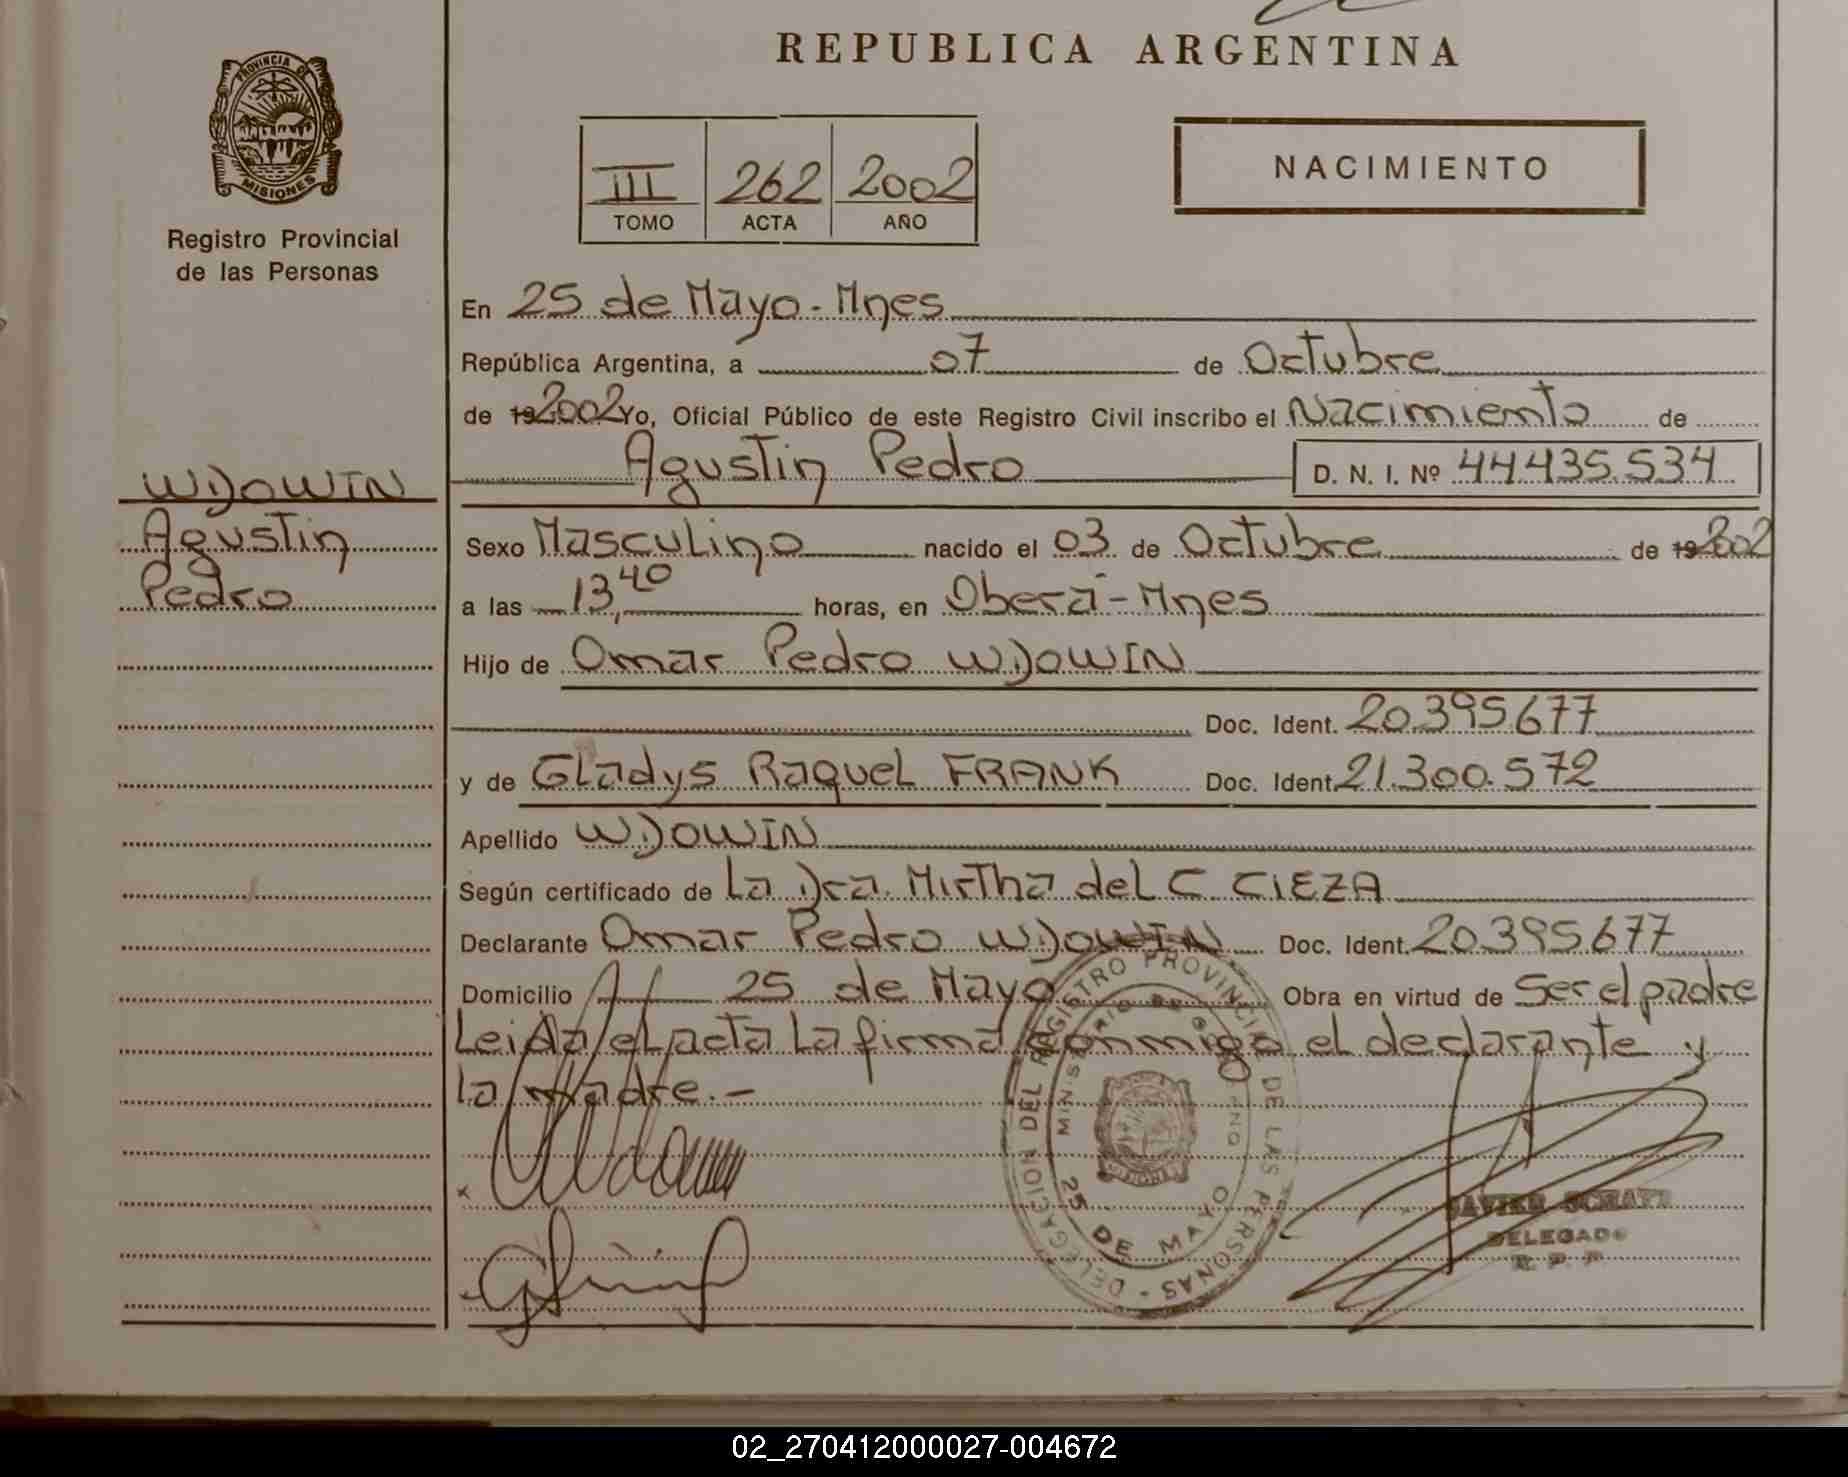 REPUBLICA ARGENTINA
PROVINCIA DE
MISIONES
Registro Provincial
de las Personas
III 262 2002
TOMO ACTA AÑO
NACIMIENTO
En 25 de Mayo - Mnes
República Argentina, a 07 de Octubre
de 19 2002 Yo, Oficial Público de este Registro Civil inscribo el Nacimiento de
Agustin Pedro D. N. I. Nº 44.435.534
WDOWIN
Agustin
Pedro
Sexo Masculino nacido el 03 de Octubre de 19 2002
a las 13,40 horas, en Oberá - Mnes
Hijo de Omar Pedro WDOWIN
Doc. Ident. 20.395.677
y de Gladys Raquel FRANK Doc. Ident. 21.300.572
Apellido WDOWIN
Según certificado de La Dra. Mirtha del C CIEZA
Declarante Omar Pedro WDOWIN Doc. Ident. 20.395.677
Domicilio 25 de Mayo Obra en virtud de Ser el padre
Leida el acta la firma conmigo el declarante y
la madre.-
DELEGACION DEL REGISTRO PROVINCIAL DE LAS PERSONAS -
MINISTERIO DE GOBIERNO
MISIONES
25 DE MAYO
DELEGADO
R. P. P.
02_270412000027-004672